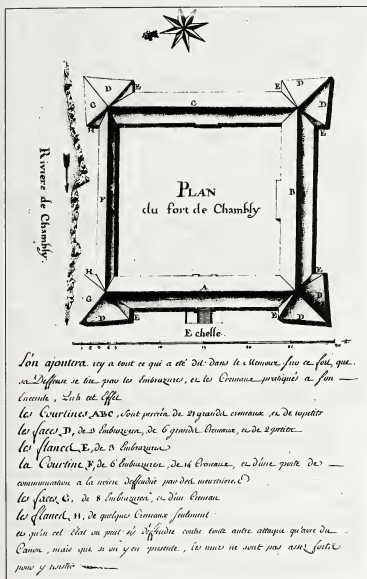 PLAN
du fort de Chambly
Riviere de Chambly.
D
E
E
D
G
C
D
H
E
F
B
H
E
A
G
D
D
D
Echelle
L'on ajoutera icy a tout ce qui a eté dit dans le Memoire sur ce fort, que
sa Deffense se tire par les Embrazures, et les Creneaux pratiqués a son
Enceinte,
les Courtines ABC, sont percéa de 21 grands creneaux, et de petits
les faces D, de 3 Embrazures, de 6 grands Creneaux, et de 2 petits
les flancs E, de 3 Embrazures
la Courtine F, de 6 Embrazures, de 14 Creneaux, et d'une porte de
communication a la riviere deffendüe par des meurtrieres
les faces G, de 8 Embrazures, et d'un Creneau
les flancs H, de quelques Creneaux seulement
et qu'en cet état on peut s'y deffendre contre toute autre attaque qu'avec du
Canon, mais que si on y en presente, les murs ne sont pas assez forts
pour y resister